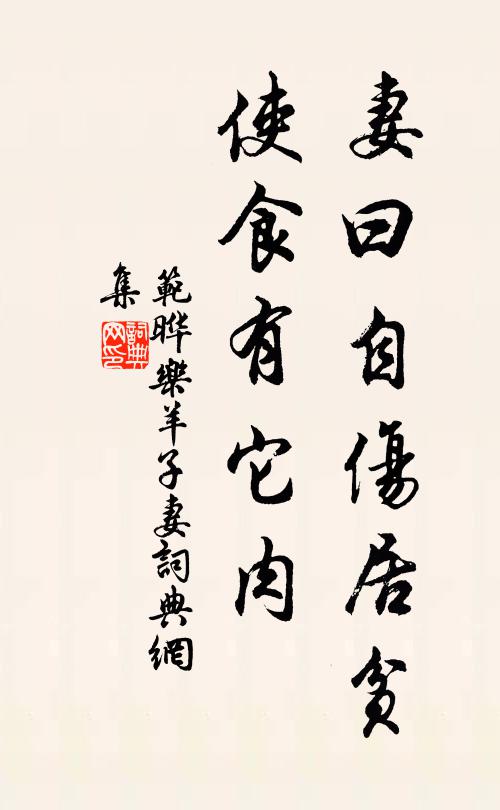 妻曰自傷居貧
使食有它肉
範曄樂羊子妻詞典網
集
詞典網印